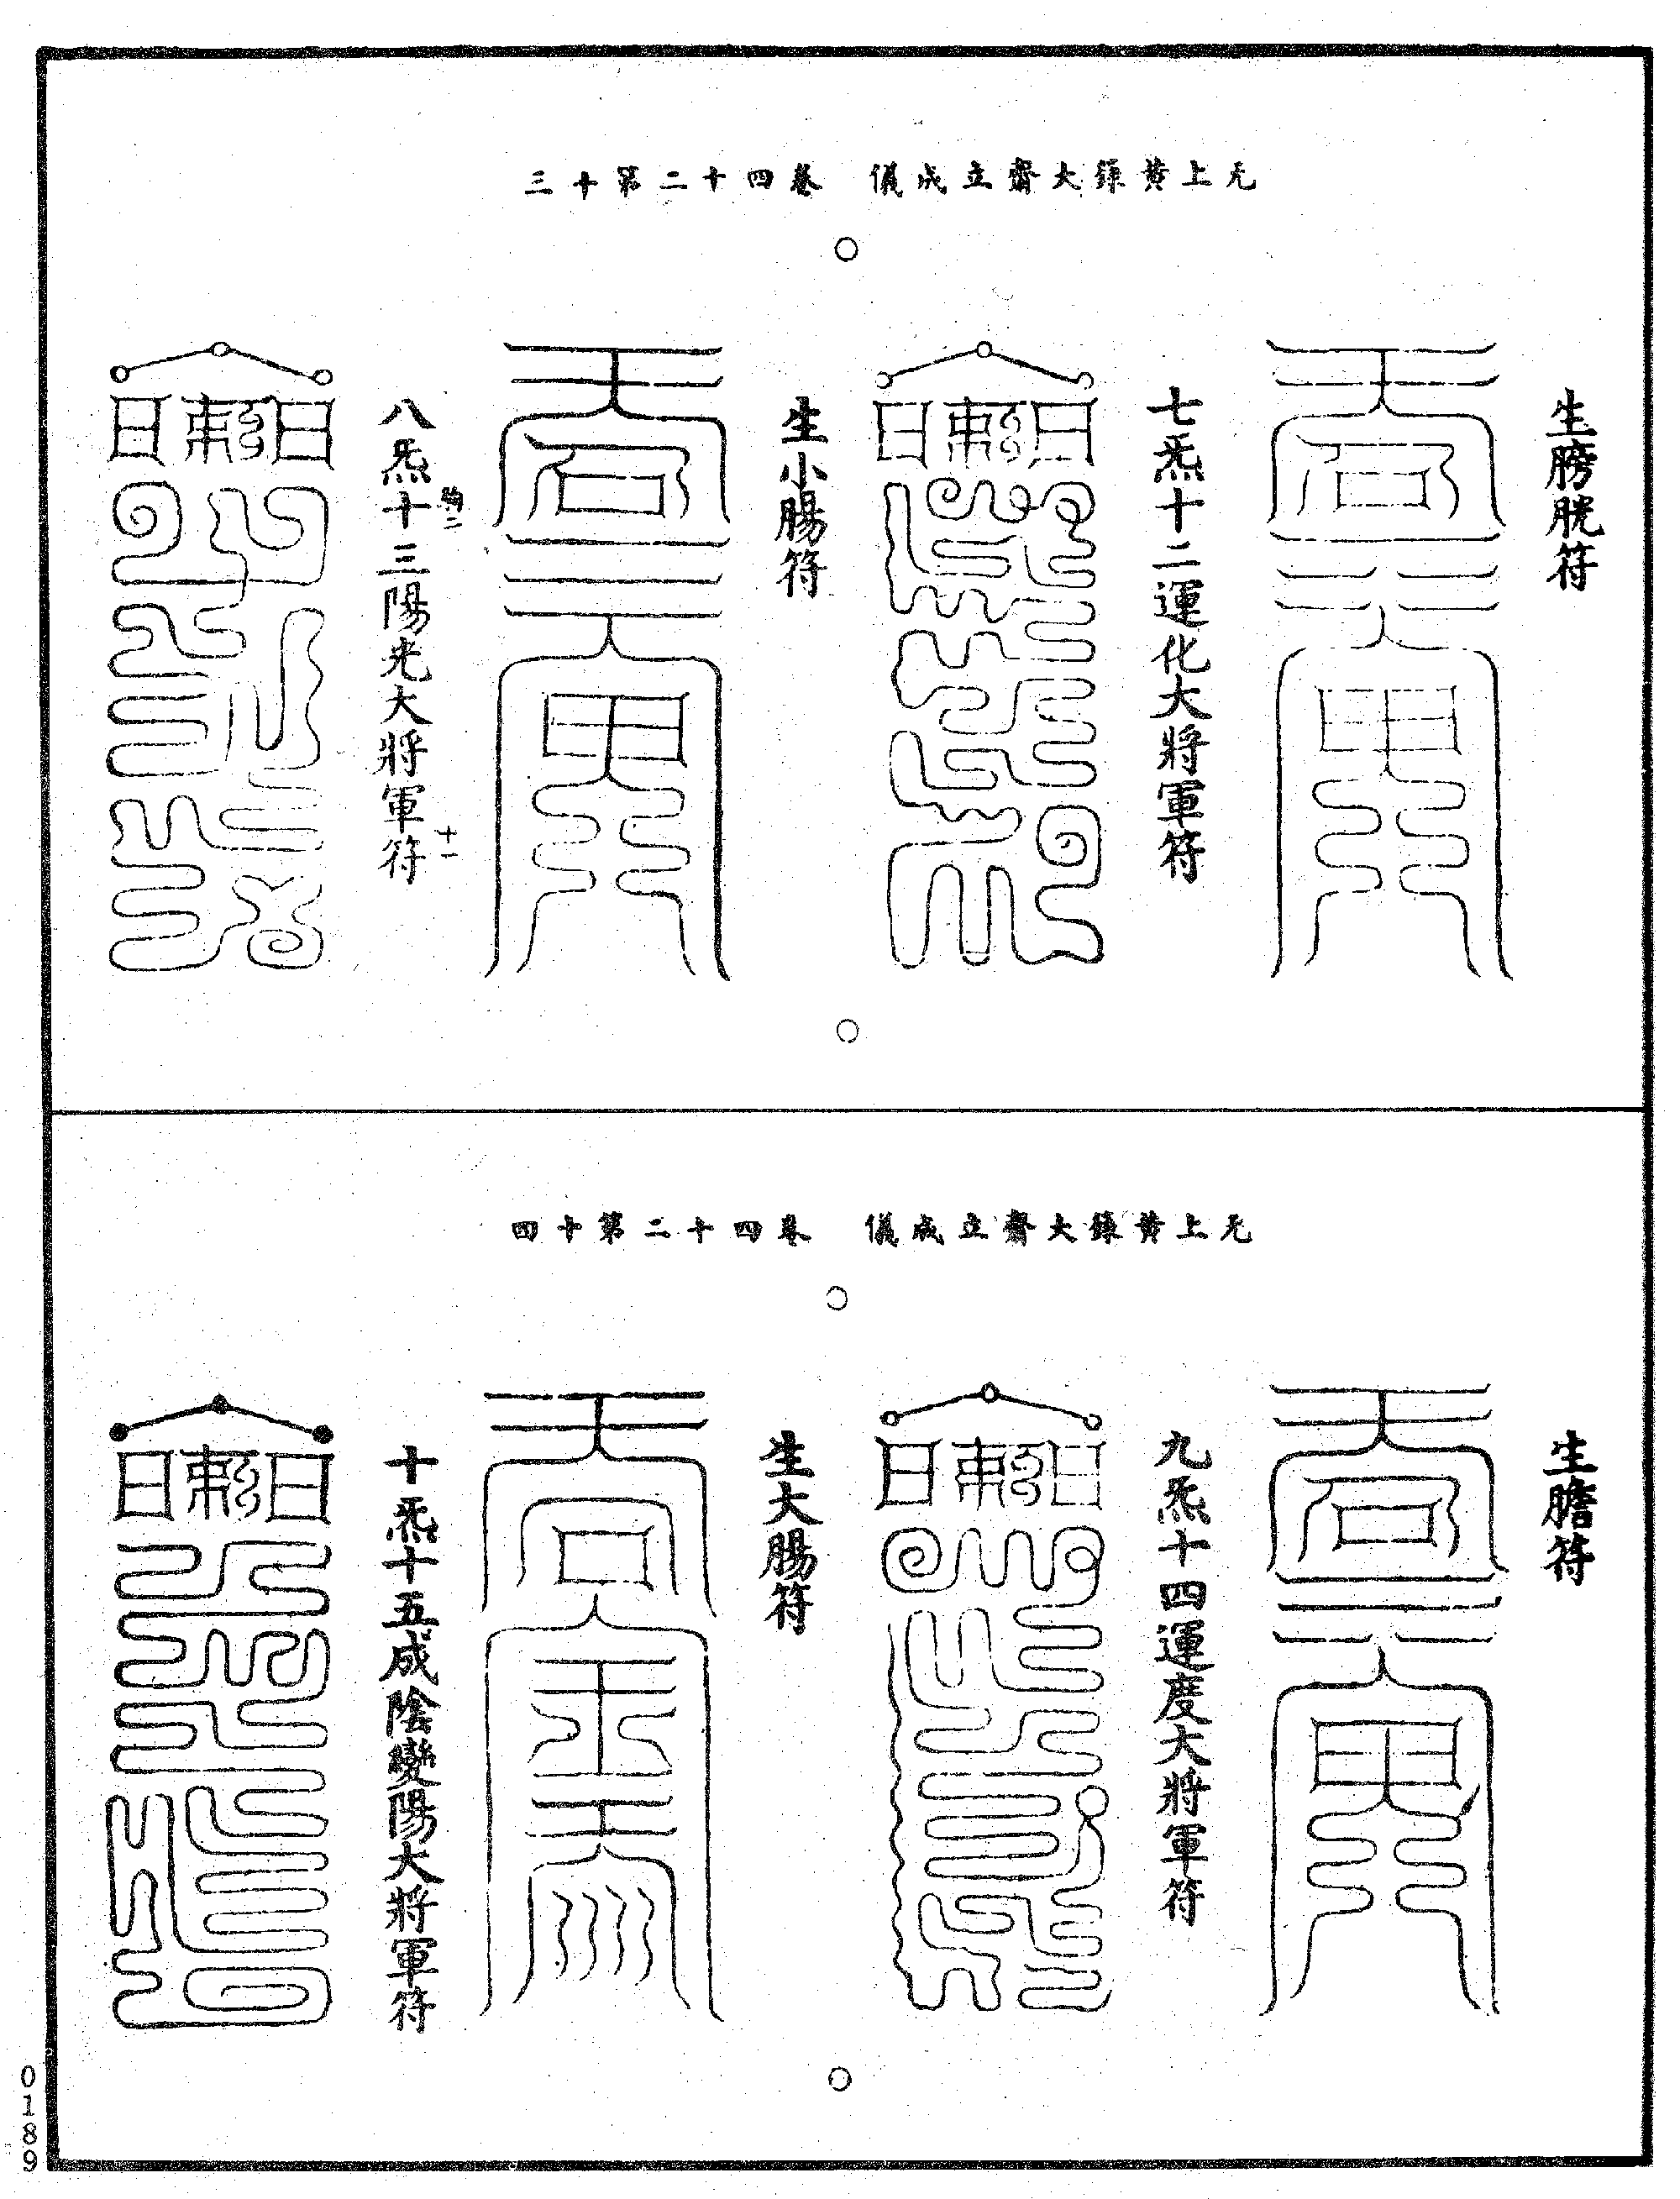 无上黃籙大齋立成儀　卷四十二第十三
生膀胱符
七炁十二運化大將軍符
生小腸符
八炁十三陽光大將軍符
十一
无上黃籙大齋立成儀　卷四十二第十四
生膽符
九炁十四運度大將軍符
生大腸符
十炁十五成陰變陽大將軍符
0189